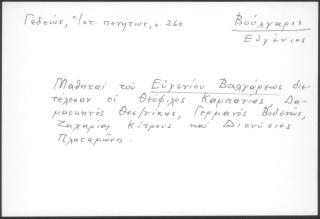 Γεδεών, π/ετ. πονητων, σ. 260
Βούλγαρις
Εὐγένιος
Μαθηταί τοῦ Εὐγενίου Βουλγάρεως διε-
τέλεσαν οἱ Θεόφιλος Καμπανίας, Δα-
μασκηνός Θεσ/νίκης, Γερμανός Βοδενῶν,
Ζαχαρίας Κίτρους καί Διονύσιος
Πλαταμῶνος.